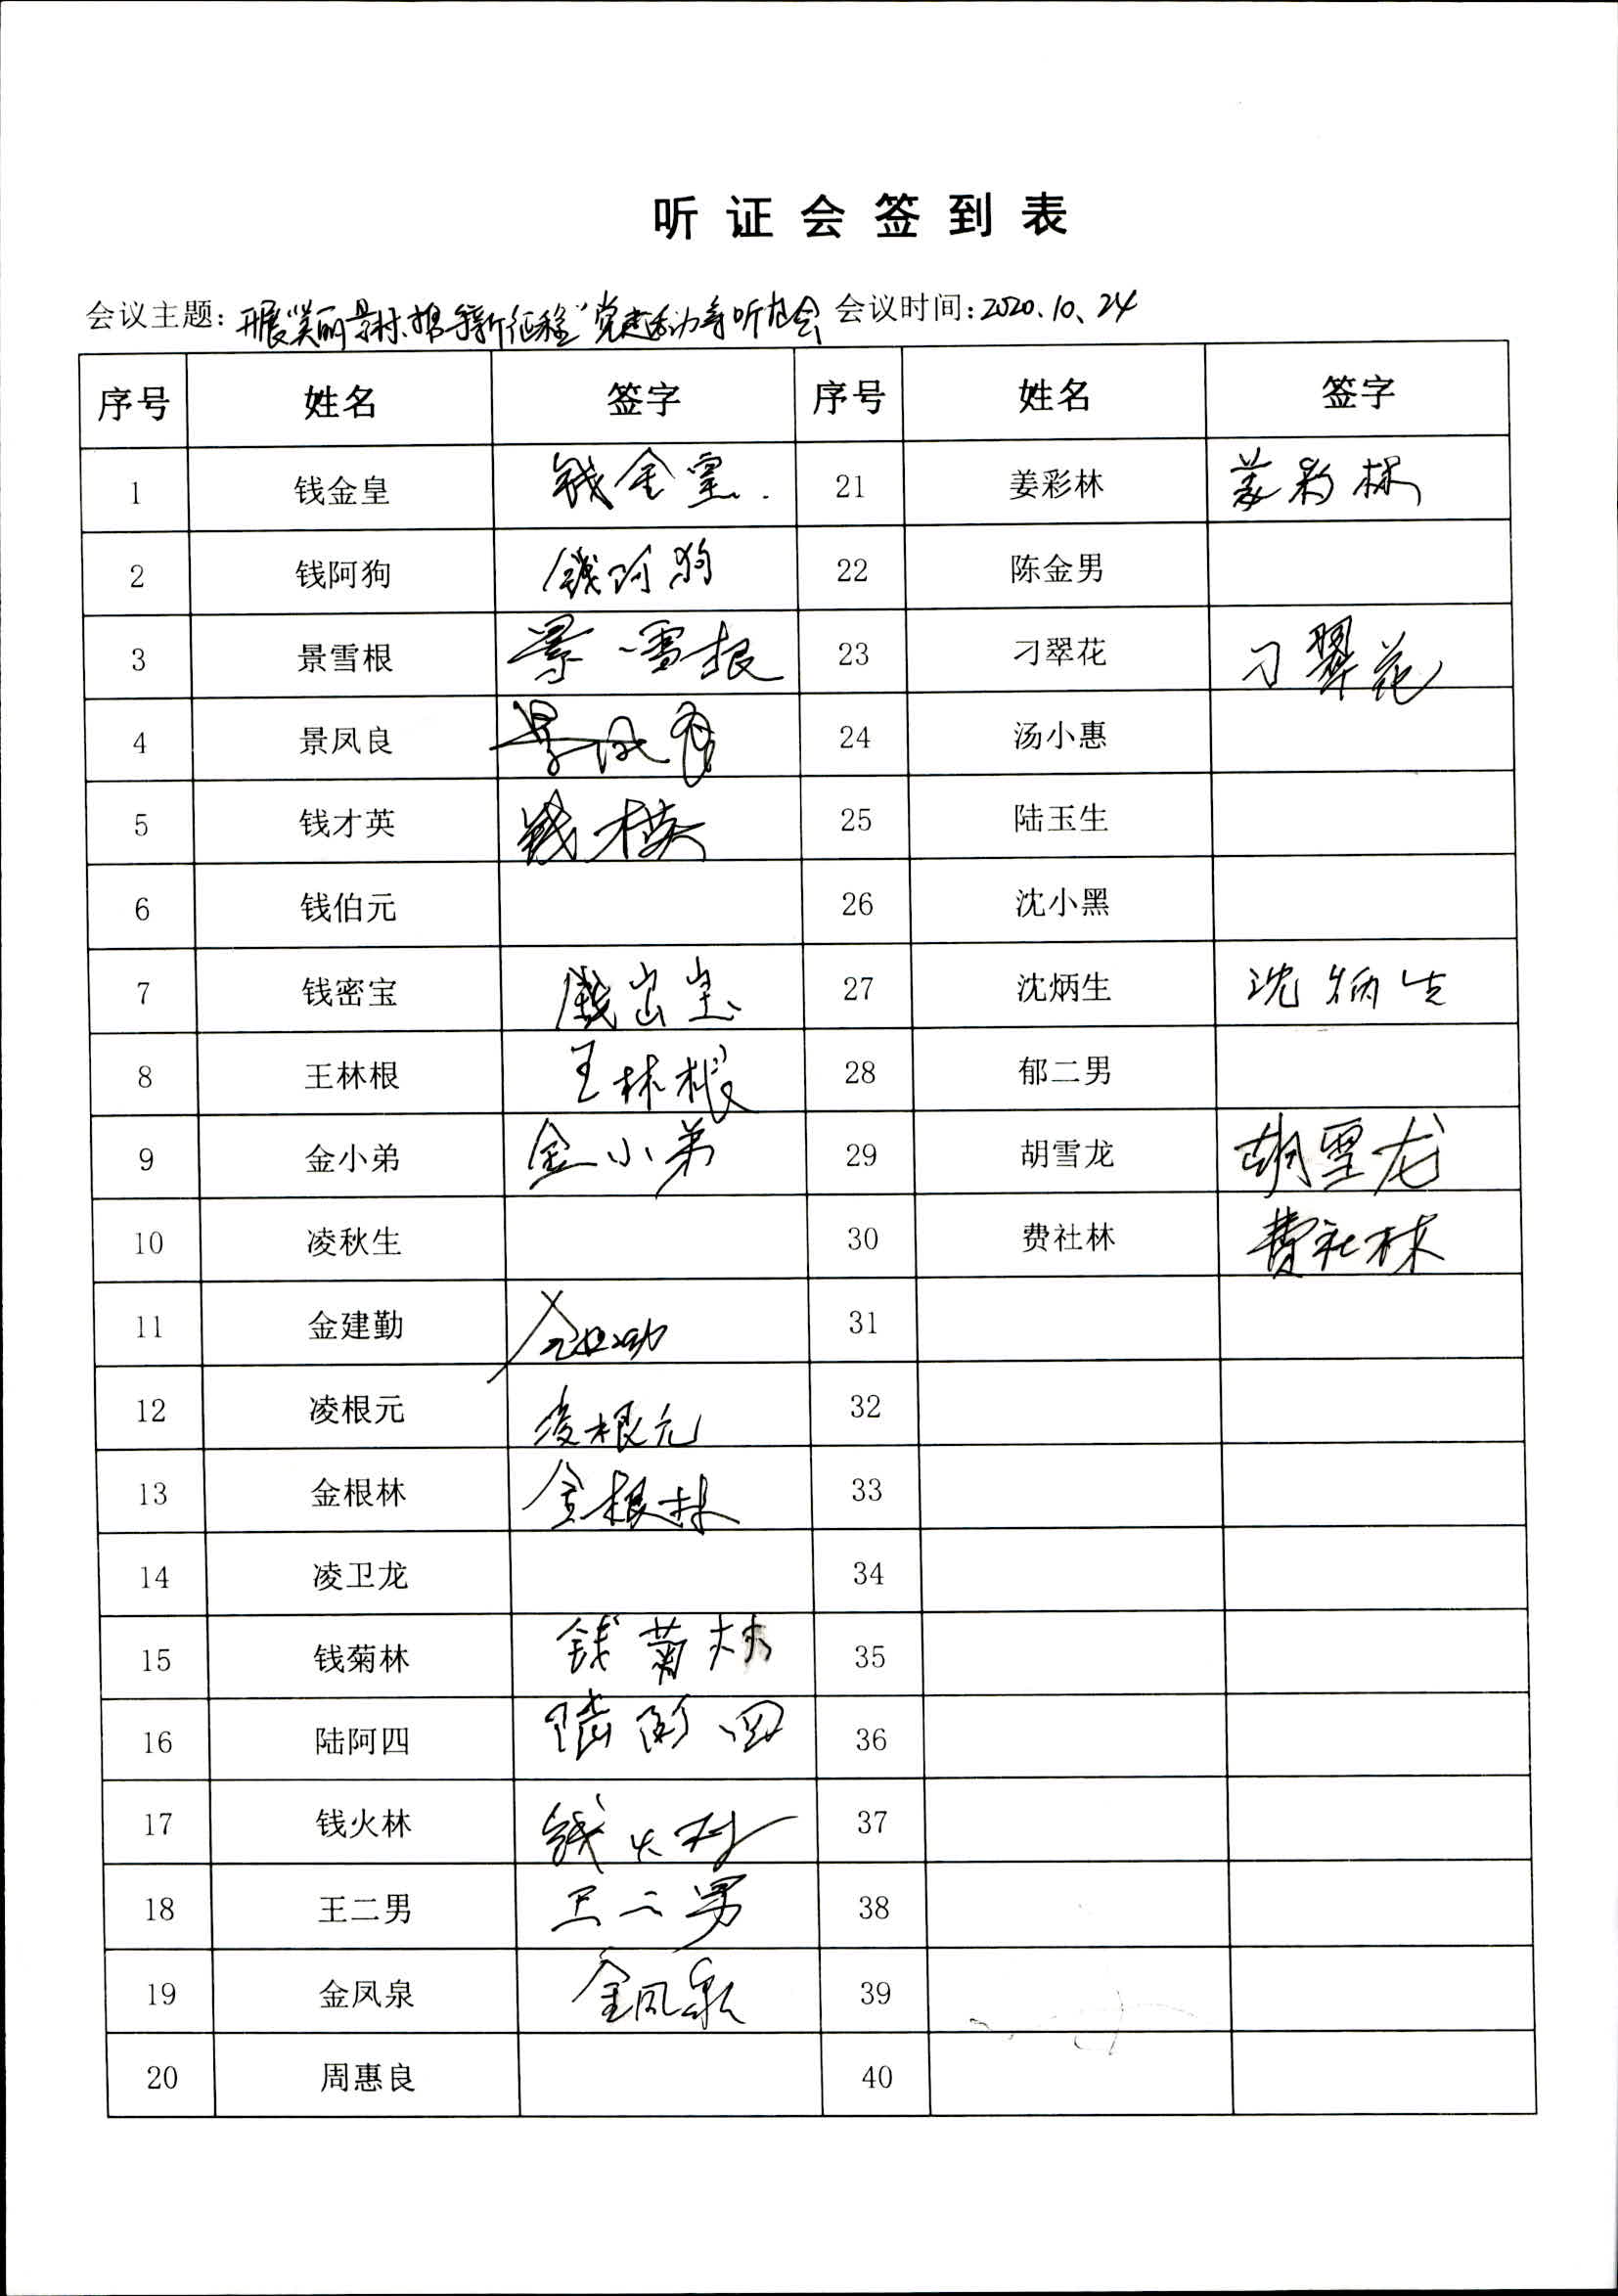 听证会签到表
会议主题：开展“美丽景村、携手新征程”党建活动等听证会 会议时间：2020.10.24
序号 姓名 签字 序号 姓名 签字
1 钱金皇 钱金皇 21 姜彩林 姜彩林
2 钱阿狗 钱阿狗 22 陈金男
3 景雪根 景雪根 23 刁翠花 刁翠花
4 景凤良 景凤良 24 汤小惠
5 钱才英 钱才英 25 陆玉生
6 钱伯元 26 沈小黑
7 钱密宝 钱密宝 27 沈炳生 沈炳生
8 王林根 王林根 28 郁二男
9 金小弟 金小弟 29 胡雪龙 胡雪龙
10 凌秋生 30 费社林 费社林
11 金建勤 金建勤 31
12 凌根元 凌根元 32
13 金根林 金根林 33
14 凌卫龙 34
15 钱菊林 钱菊林 35
16 陆阿四 陆阿四 36
17 钱火林 钱火林 37
18 王二男 王二男 38
19 金凤泉 金凤泉 39
20 周惠良 40